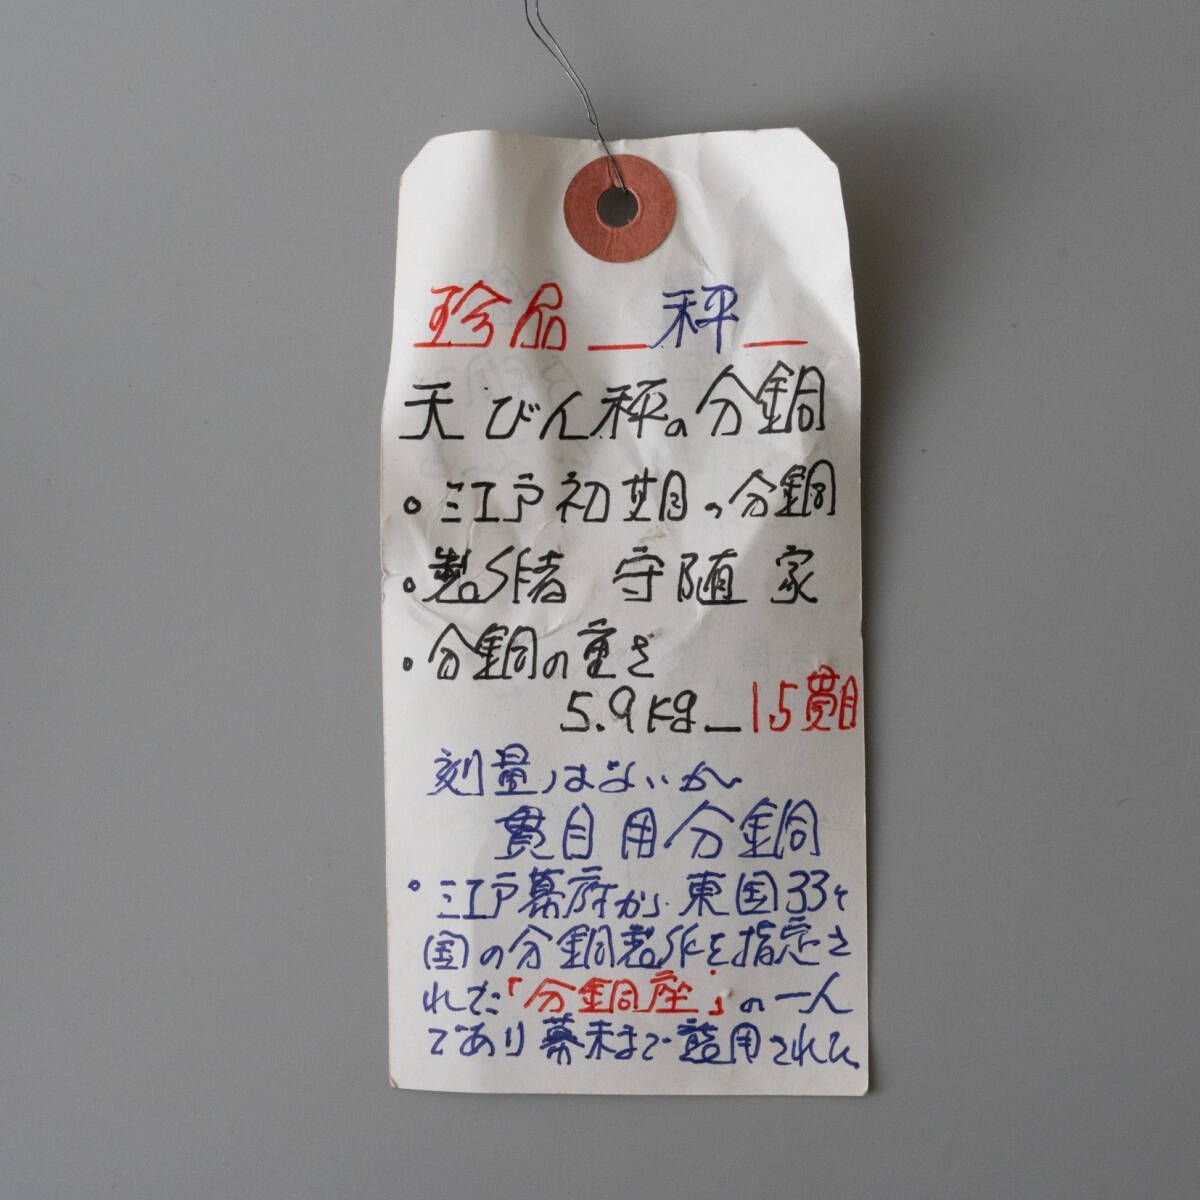 珍品 ー 秤 ー
天びん秤の分銅
○江戸初期の分銅
○製作者 守随家
○分銅の重さ
5.9kg ー 1.5貫目
刻量はないが
貫目用分銅
○江戸幕府から東国33ヶ
国の分銅製作を指定さ
れた「分銅座」の一人
であり幕末まで 用された。